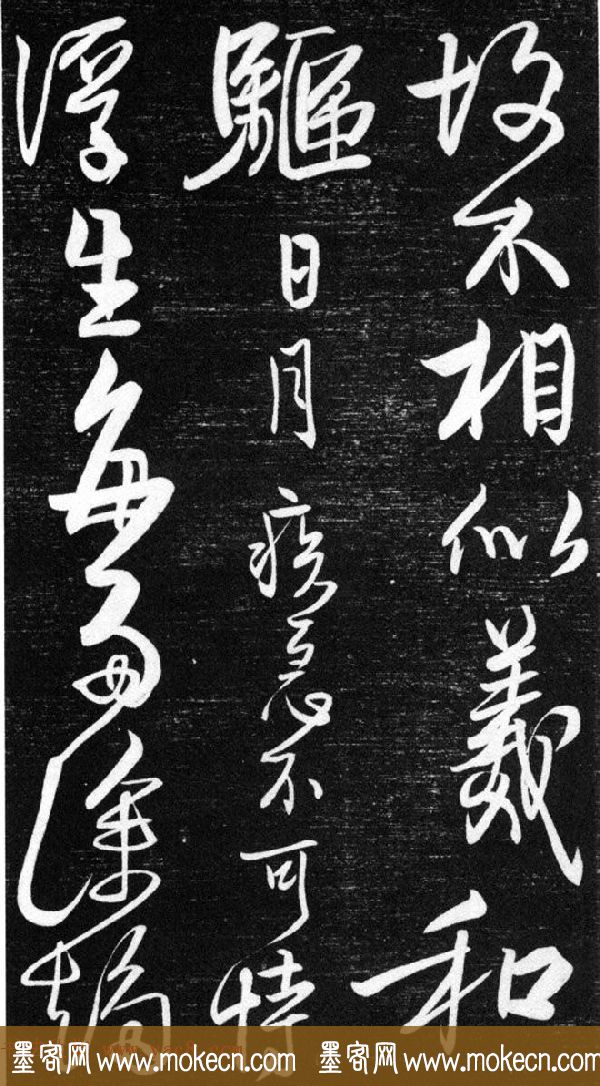 故不相似羲和
驅日月疾急不可恃
浮生多塗趨
墨客网 www.mokecn.com 墨客网 www.mokecn.com